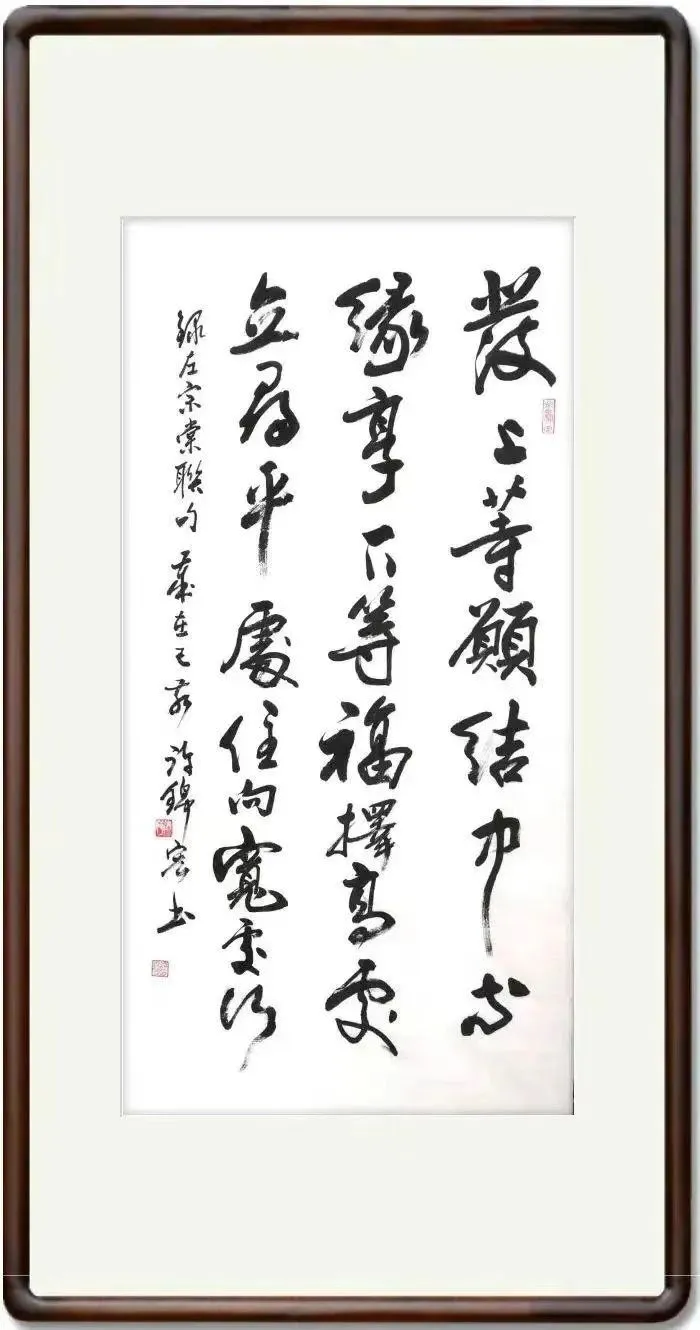 發上等願結中等
緣享下等福擇高處
立尋平處住向寬處行
錄左宗棠聯句 歲在己亥 許錦 書